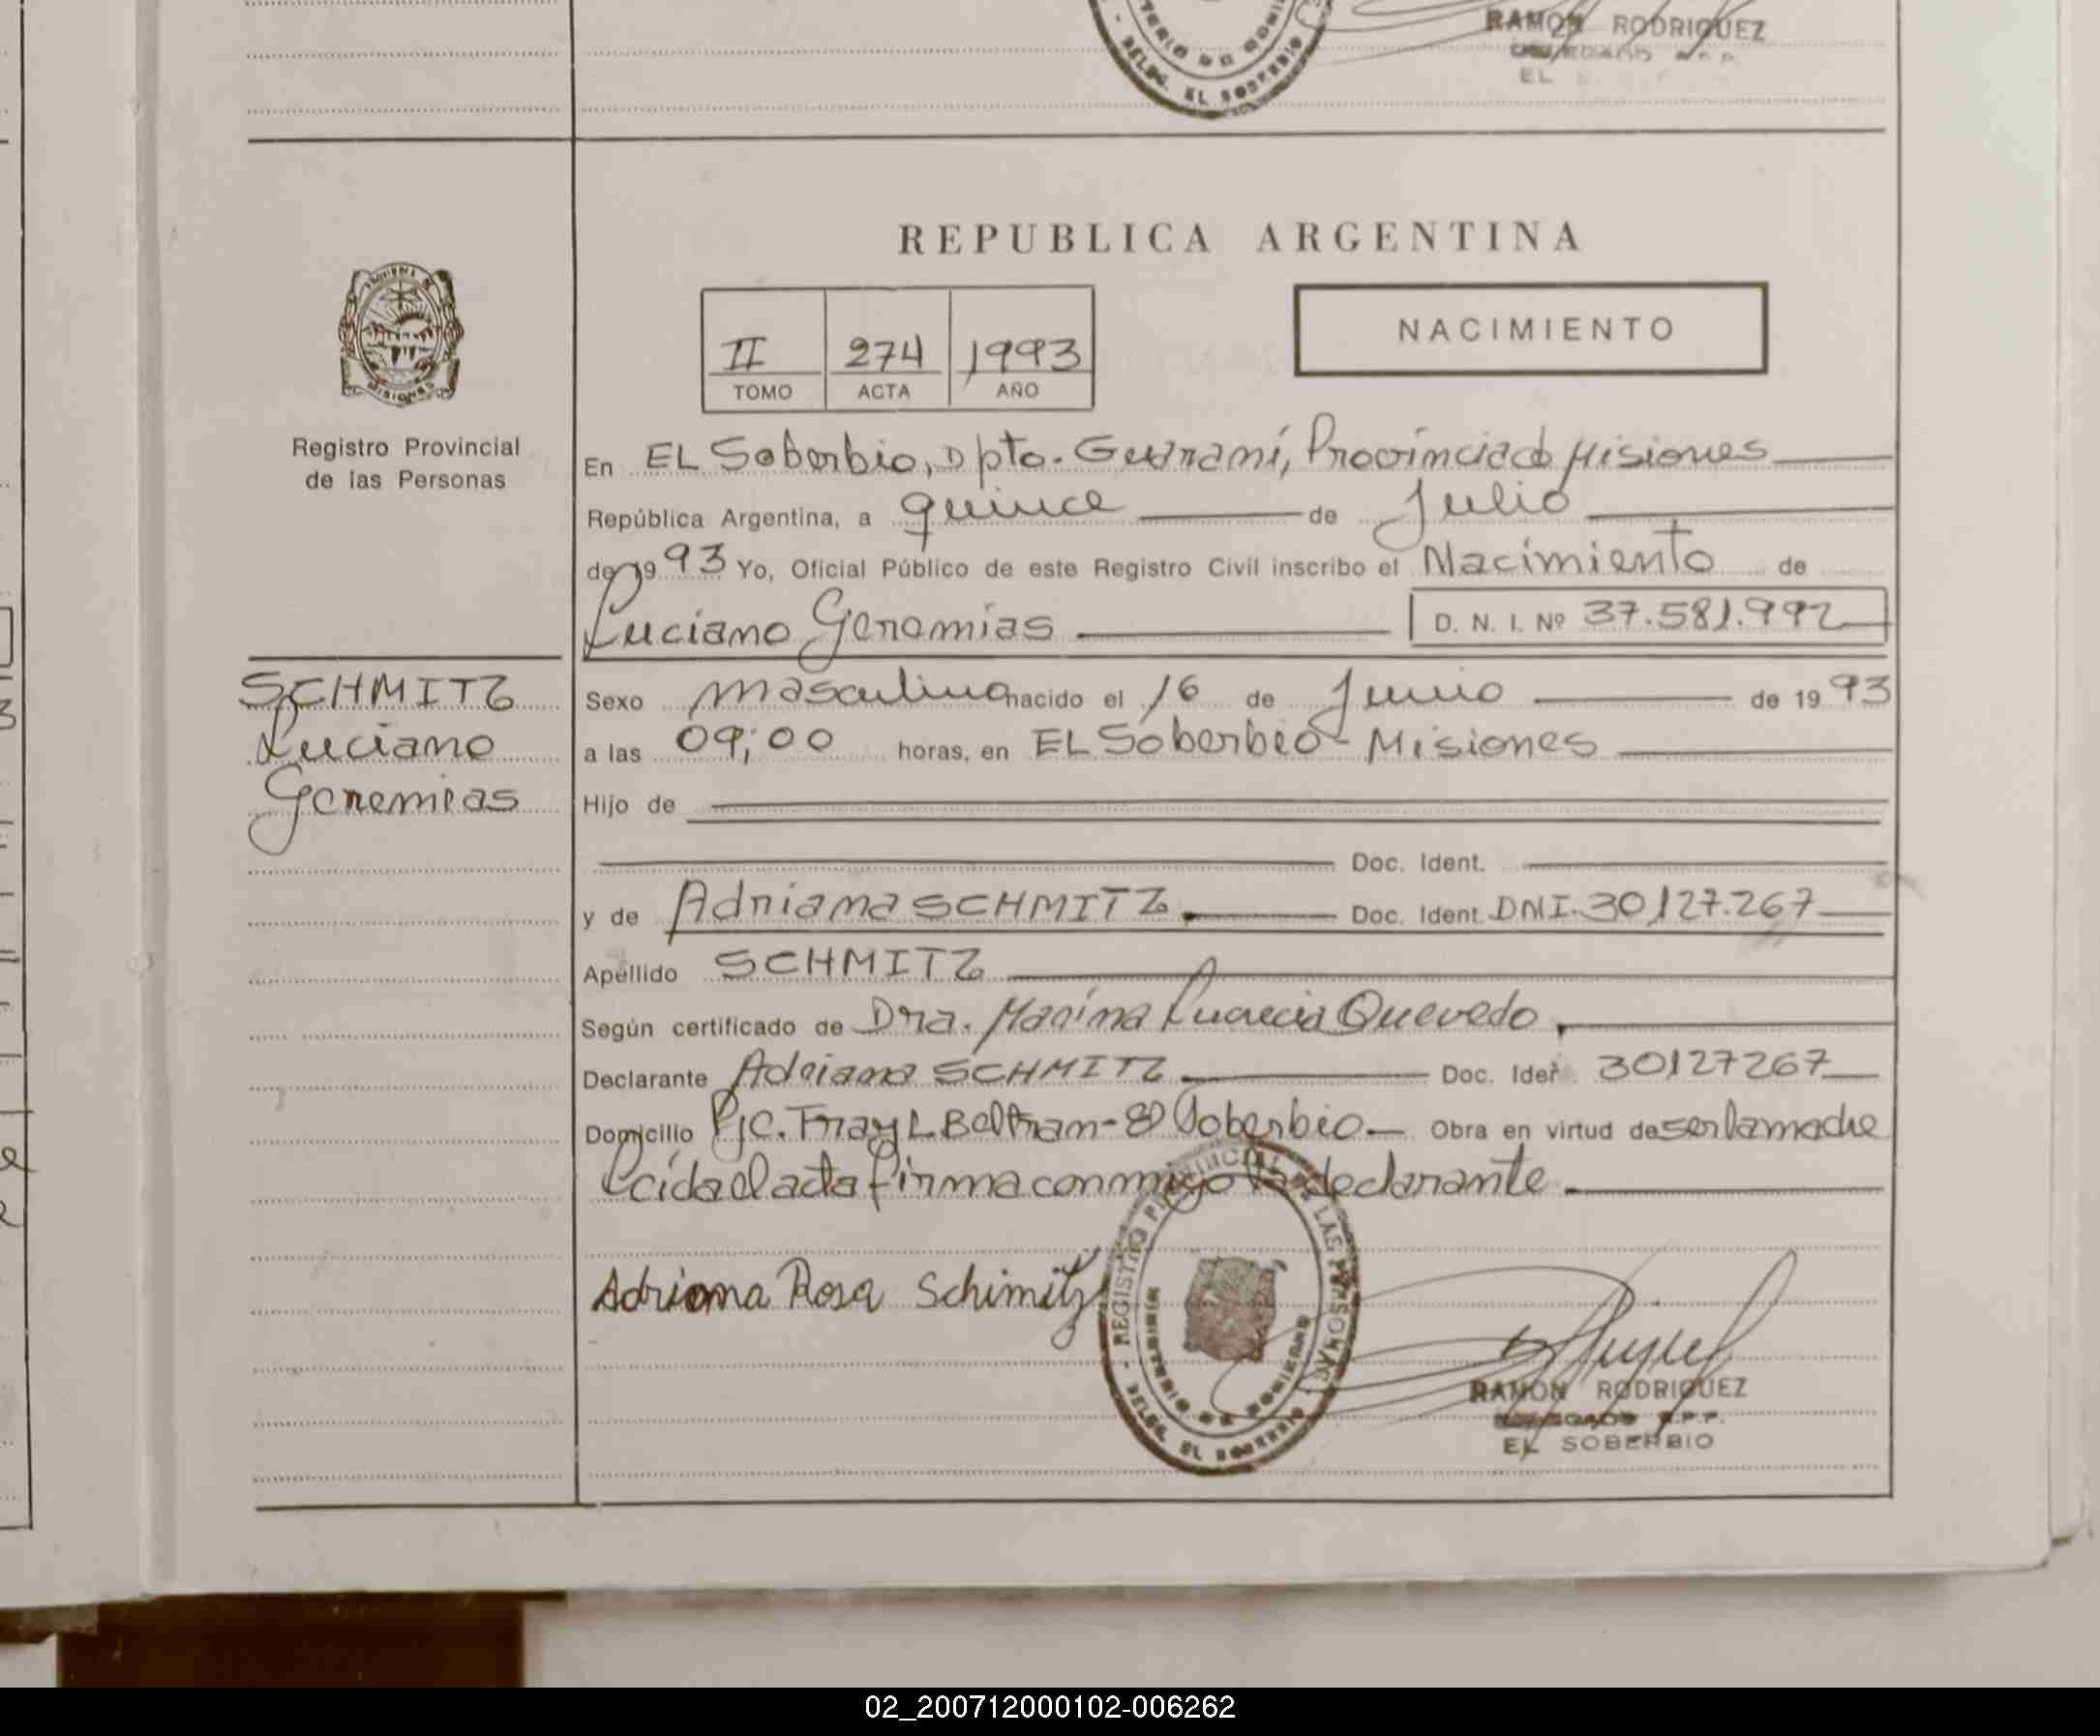 RAMON RODRIGUEZ
EL
DELEG. EL SOBERBIO
REPUBLICA ARGENTINA
NACIMIENTO
II 274 1993
TOMO ACTA AÑO
Registro Provincial
de las Personas
En EL Soberbio, Dpto. Guaraní, Provincia de Misiones
República Argentina, a quince de Julio
de 1993 Yo, Oficial Público de este Registro Civil inscribo el Nacimiento de
Luciano Geremías D. N. I. Nº 37.581.992
SCHMITZ
Luciano
Geremias
Sexo masculino nacido el 16 de Junio de 1993
a las 09;00 horas, en EL Soberbio - Misiones
Hijo de
Doc. Ident.
y de Adriana SCHMITZ. Doc. Ident. DNI. 30127.267
Apellido SCHMITZ
Según certificado de Dra. Marina Lucrecia Quevedo.
Declarante Adriana SCHMITZ Doc. Ident. 30127267
Domicilio Pje. Fray L Beltran - El Soberbio. Obra en virtud de ser la madre
Leída el acta firma conmigo la declarante.
Adriana Rosa Schimitz
REGISTRO PROVINCIAL DE LAS PERSONAS
MINISTERIO DE GOBIERNO
DELEG. EL SOBERBIO
RAMON RODRIGUEZ
DELEGADO R.P.P.
EL SOBERBIO
02_200712000102-006262